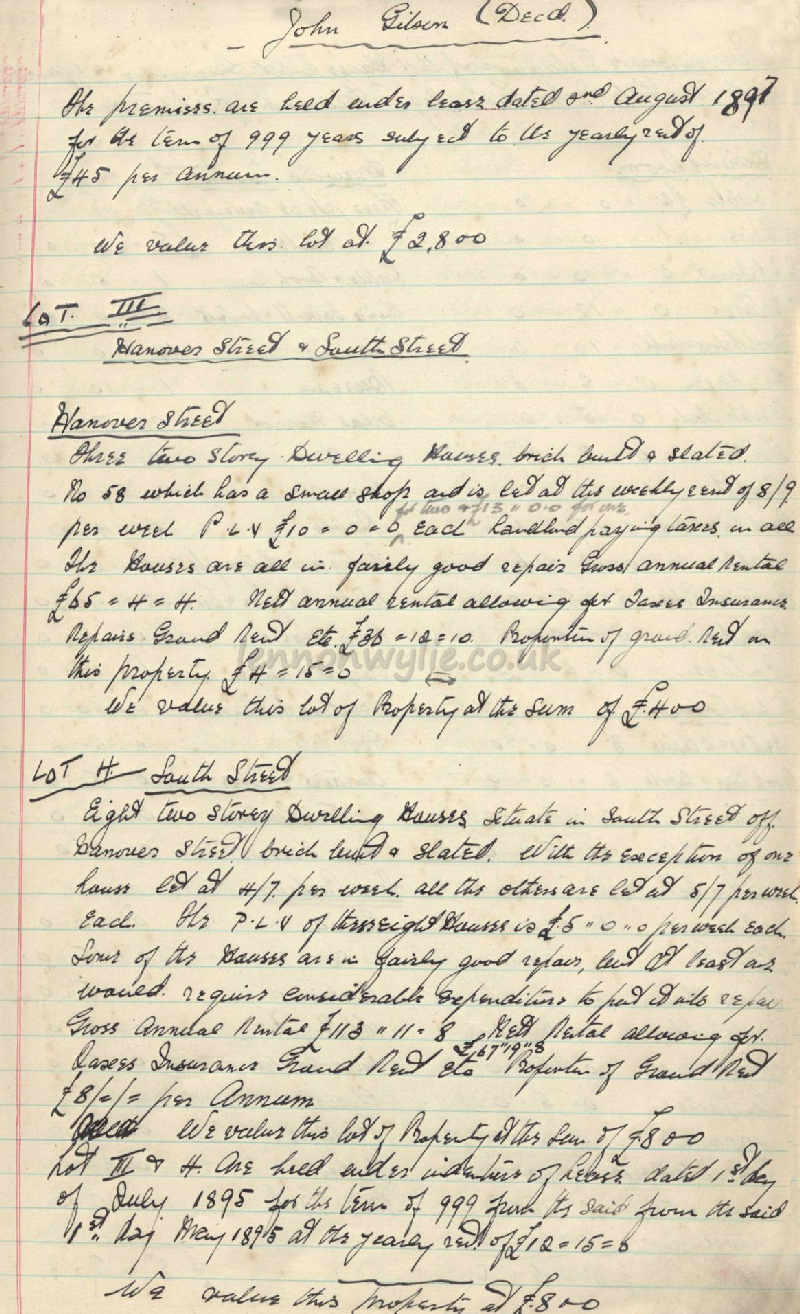 John Gilson (Decd.)
The premises are held under lease dated 2nd August 1897
for the term of 999 years subject to the yearly rent of
£45 per annum.
We value this lot at £2,800
LOT. III
Hanover Street & South Street
Hanover Street
Three two Storey Dwelling Houses, brick built & slated.
No 58 which has a small shop and is let at the weekly rent of 8/9
for two & £13 " 0 " 0 for one
per week P.L.V £10 = 0 = 0 each landlord paying taxes in all
The Houses are all in fairly good repair Gross annual Rental
£65 = 4 = 4. Nett annual rental allowing for Taxes Insurance
Repairs Ground Rent Etc. £36 = 12 = 10. Proportion of ground rent on
this property £4 = 15 = 0
lennonwylie.co.uk
We value this lot of Property at the sum of £400
LOT 4 South Street
Eight two Storey Dwelling Houses situate in South Street off
Hanover Street brick built & slated. With the exception of one
house let at 4/7 per week all the others are let at 5/7 per week
each. The P.L.V of these eight Houses is £5 " 0 " 0 per week each.
Some of the Houses are in fairly good repair, but at least one
would require considerable expenditure to put it into repair
Gross Annual Rental £113 " 11 = 8 Nett Rental allowing for
£67 " 19 " 8
Taxes Insurance Ground Rent Etc Proportion of Ground Rent
£8/=/= per Annum
We value this lot of Property at the sum of £800
Lot III & 4. Are held under indenture of Lease dated 1st day
of July 1895 for the term of 999 from the said from the said
1st day May 1895 at the yearly rent of £12 = 15 = 0
We value this property at £800